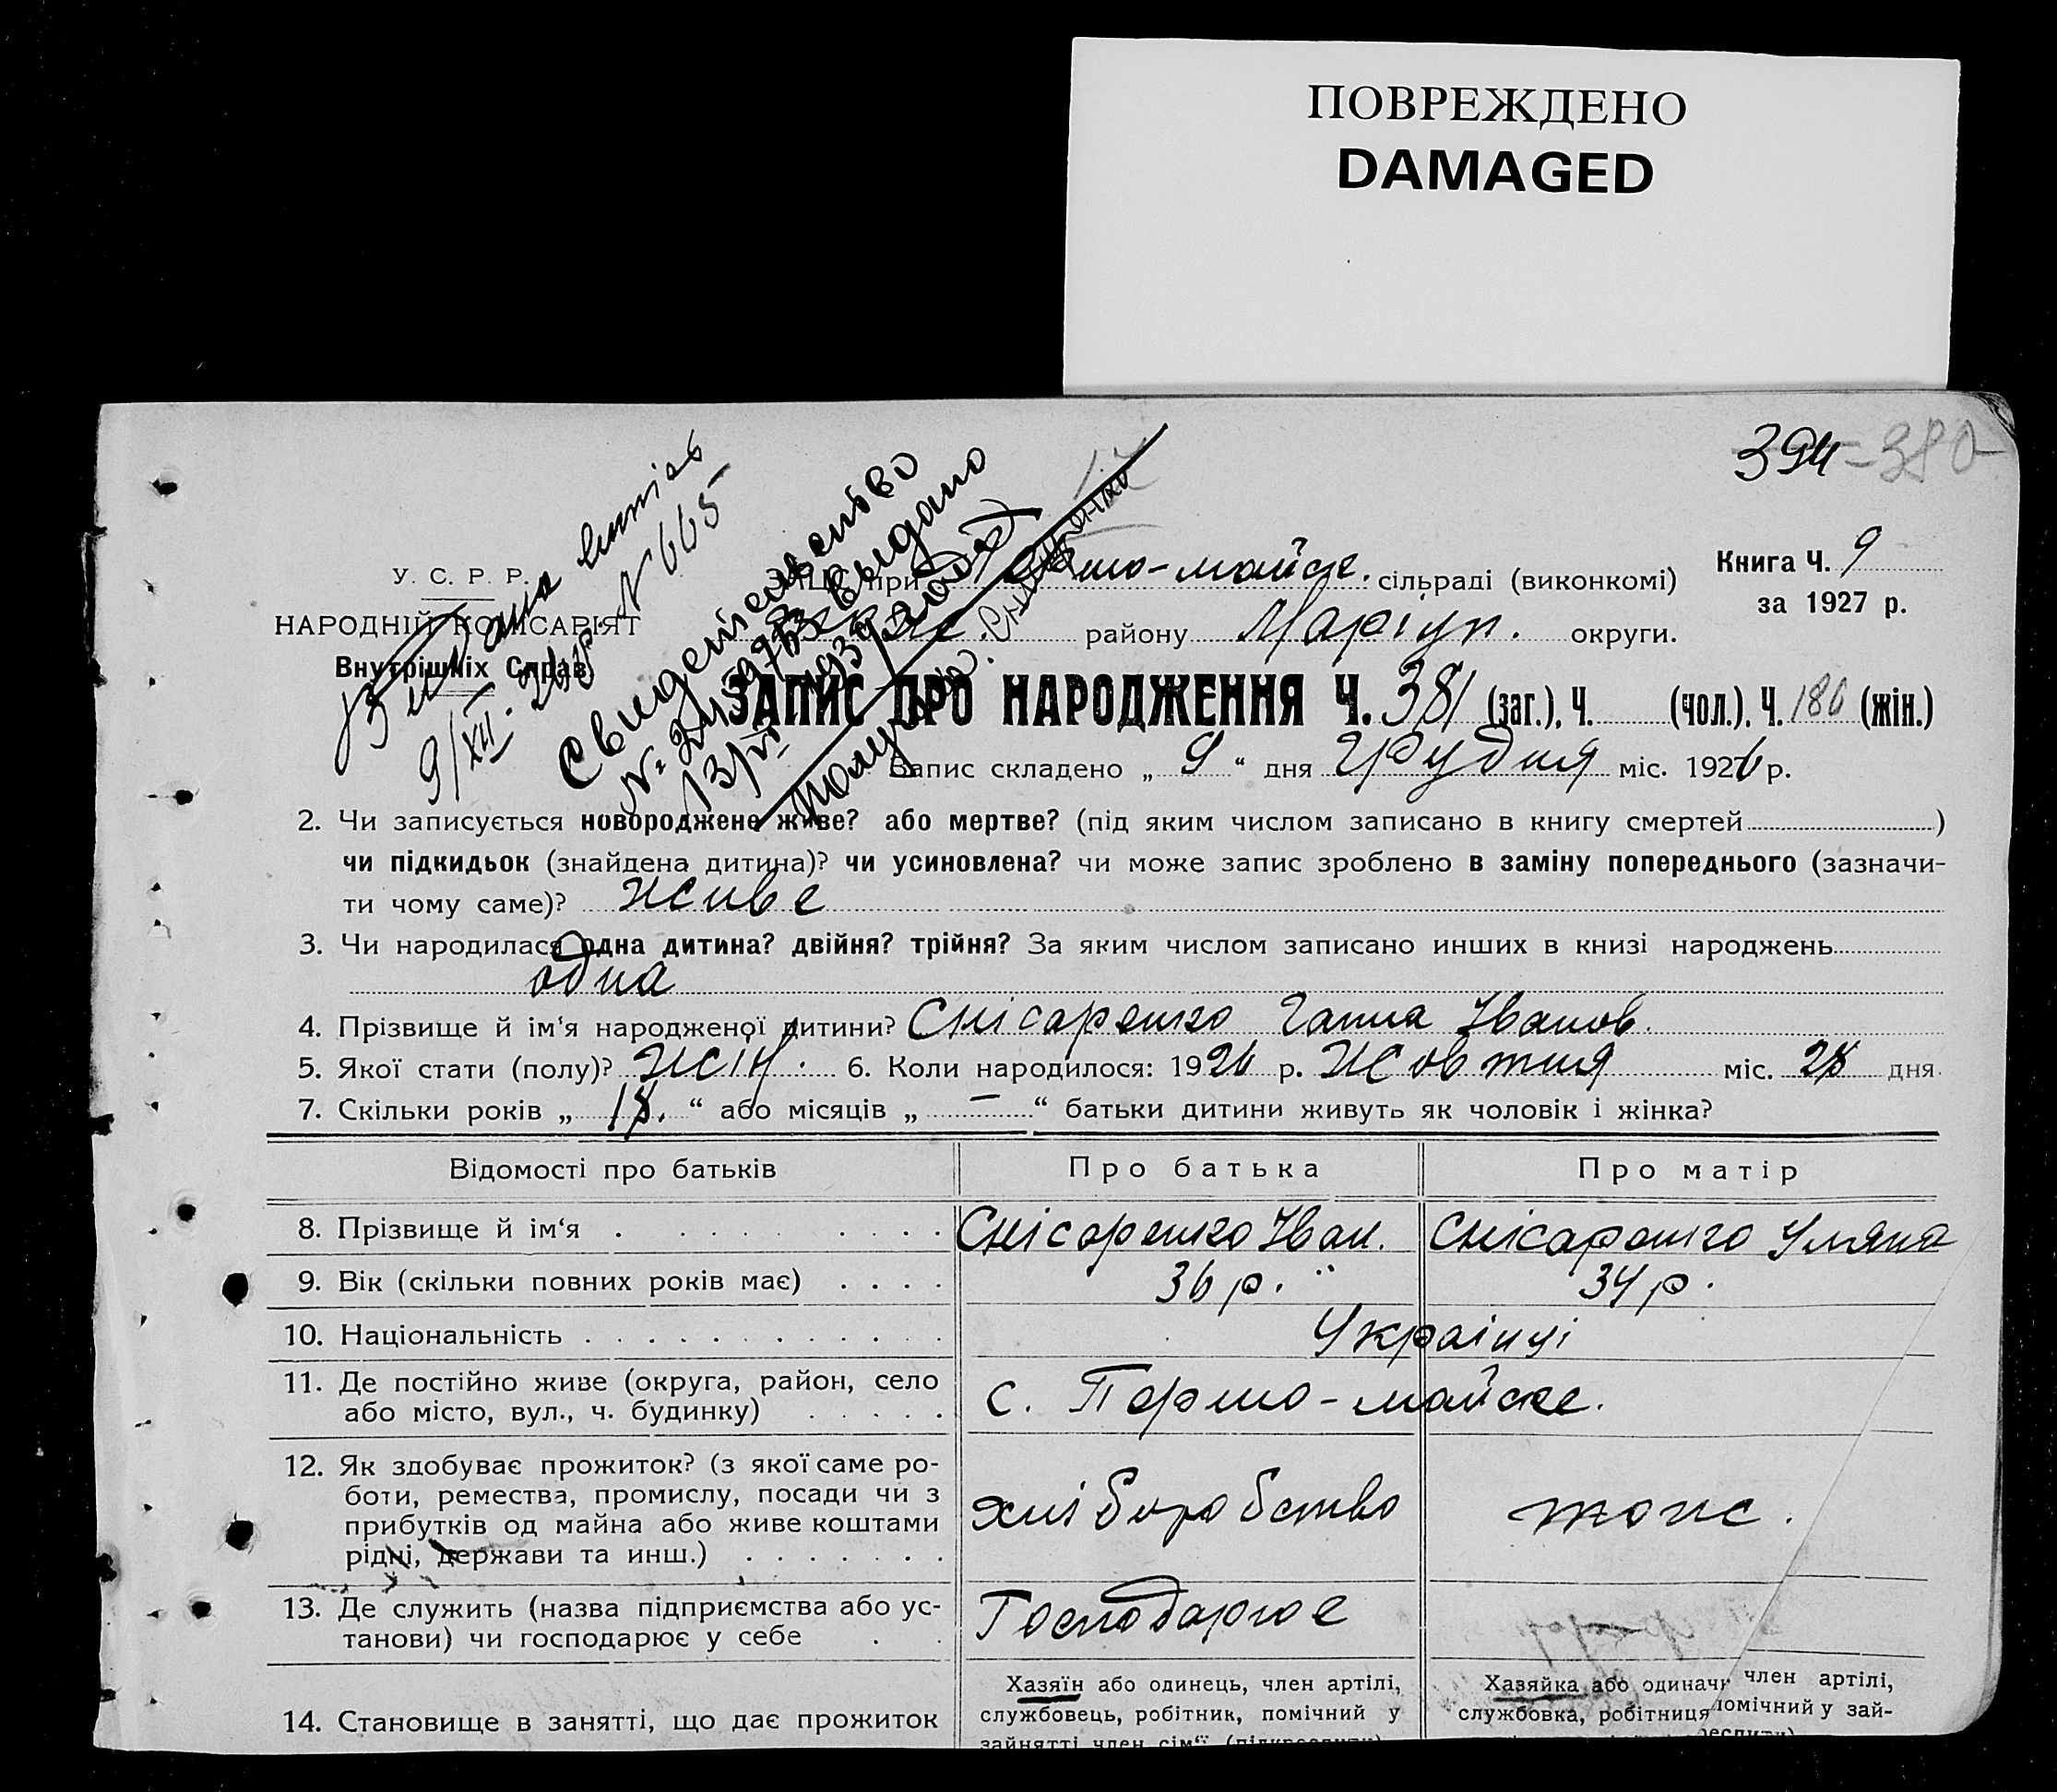 ПОВРЕЖДЕНО
DAMAGED
394 - 380
У. С. Р. Р.
НАРОДНІЙ КОМІСАРІЯТ
Внутрішніх Справ
Видана
9/XII-26 р. N 665
Свидетельство
выдано
при Першо-майск. сільраді (виконкомі)
району Маріуп. округи.
Книга Ч. 9
за 1927 р.
ЗАПИС ПРО НАРОДЖЕННЯ Ч. 381 (заг.), Ч. (чол.), Ч. 186 (жін.)
Запис складено „ 9 “ дня Грудня міс. 1926 р.
2. Чи записується новороджене живе? або мертве? (під яким числом записано в книгу смертей )
чи підкидьок (знайдена дитина)? чи усиновлена? чи може запис зроблено в заміну попереднього (зазначи-
ти чому саме)? живе
3. Чи народилася одна дитина? двійня? трійня? За яким числом записано инших в книзі народжень
одна
4. Прізвище й ім‘я народженої дитини? Снісаренко Ганна Іванов.
5. Якої стати (полу)? жін. 6. Коли народилося: 1926 р. Жовтня міс. 28 дня
7. Скільки років „ “ або місяців „ — “ батьки дитини живуть як чоловік і жінка?
Відомості про батьків Про батька Про матір
8. Прізвище й ім‘я Снісаренко Іван. Снісаренко Уляна
9. Вік (скільки повних років має) 36 р. 34 р.
10. Національність Українці
11. Де постійно живе (округа, район, село
або місто, вул., ч. будинку) с. Першо-майске.
12. Як здобуває прожиток? (з якої саме ро-
боти, ремества, промислу, посади чи з
прибутків од майна або живе коштами
рідні, держави та инш.) хліборобство тоже.
13. Де служить (назва підприємства або ус-
танови) чи господарює у себе Господарює
14. Становище в занятті, що дає прожиток
Хазяїн або одинець, член артілі,
службовець, робітник, помічний у
зайнятті член сім‘ї (підкреслити)
Хазяйка або одиначк член артілі,
службовка, робітниця помічний у зай-